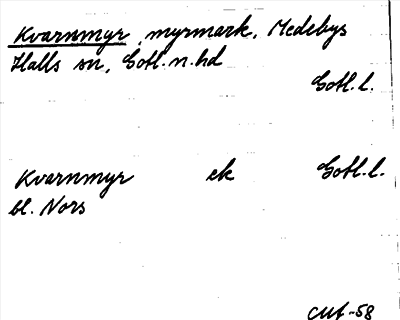 Kvarnmyr, myrmark, Medebys
Halls sn, Gotl. n. hd
Gotl. l.
Kvarnmyr ek Gotl. l.
bl. Nors
-58